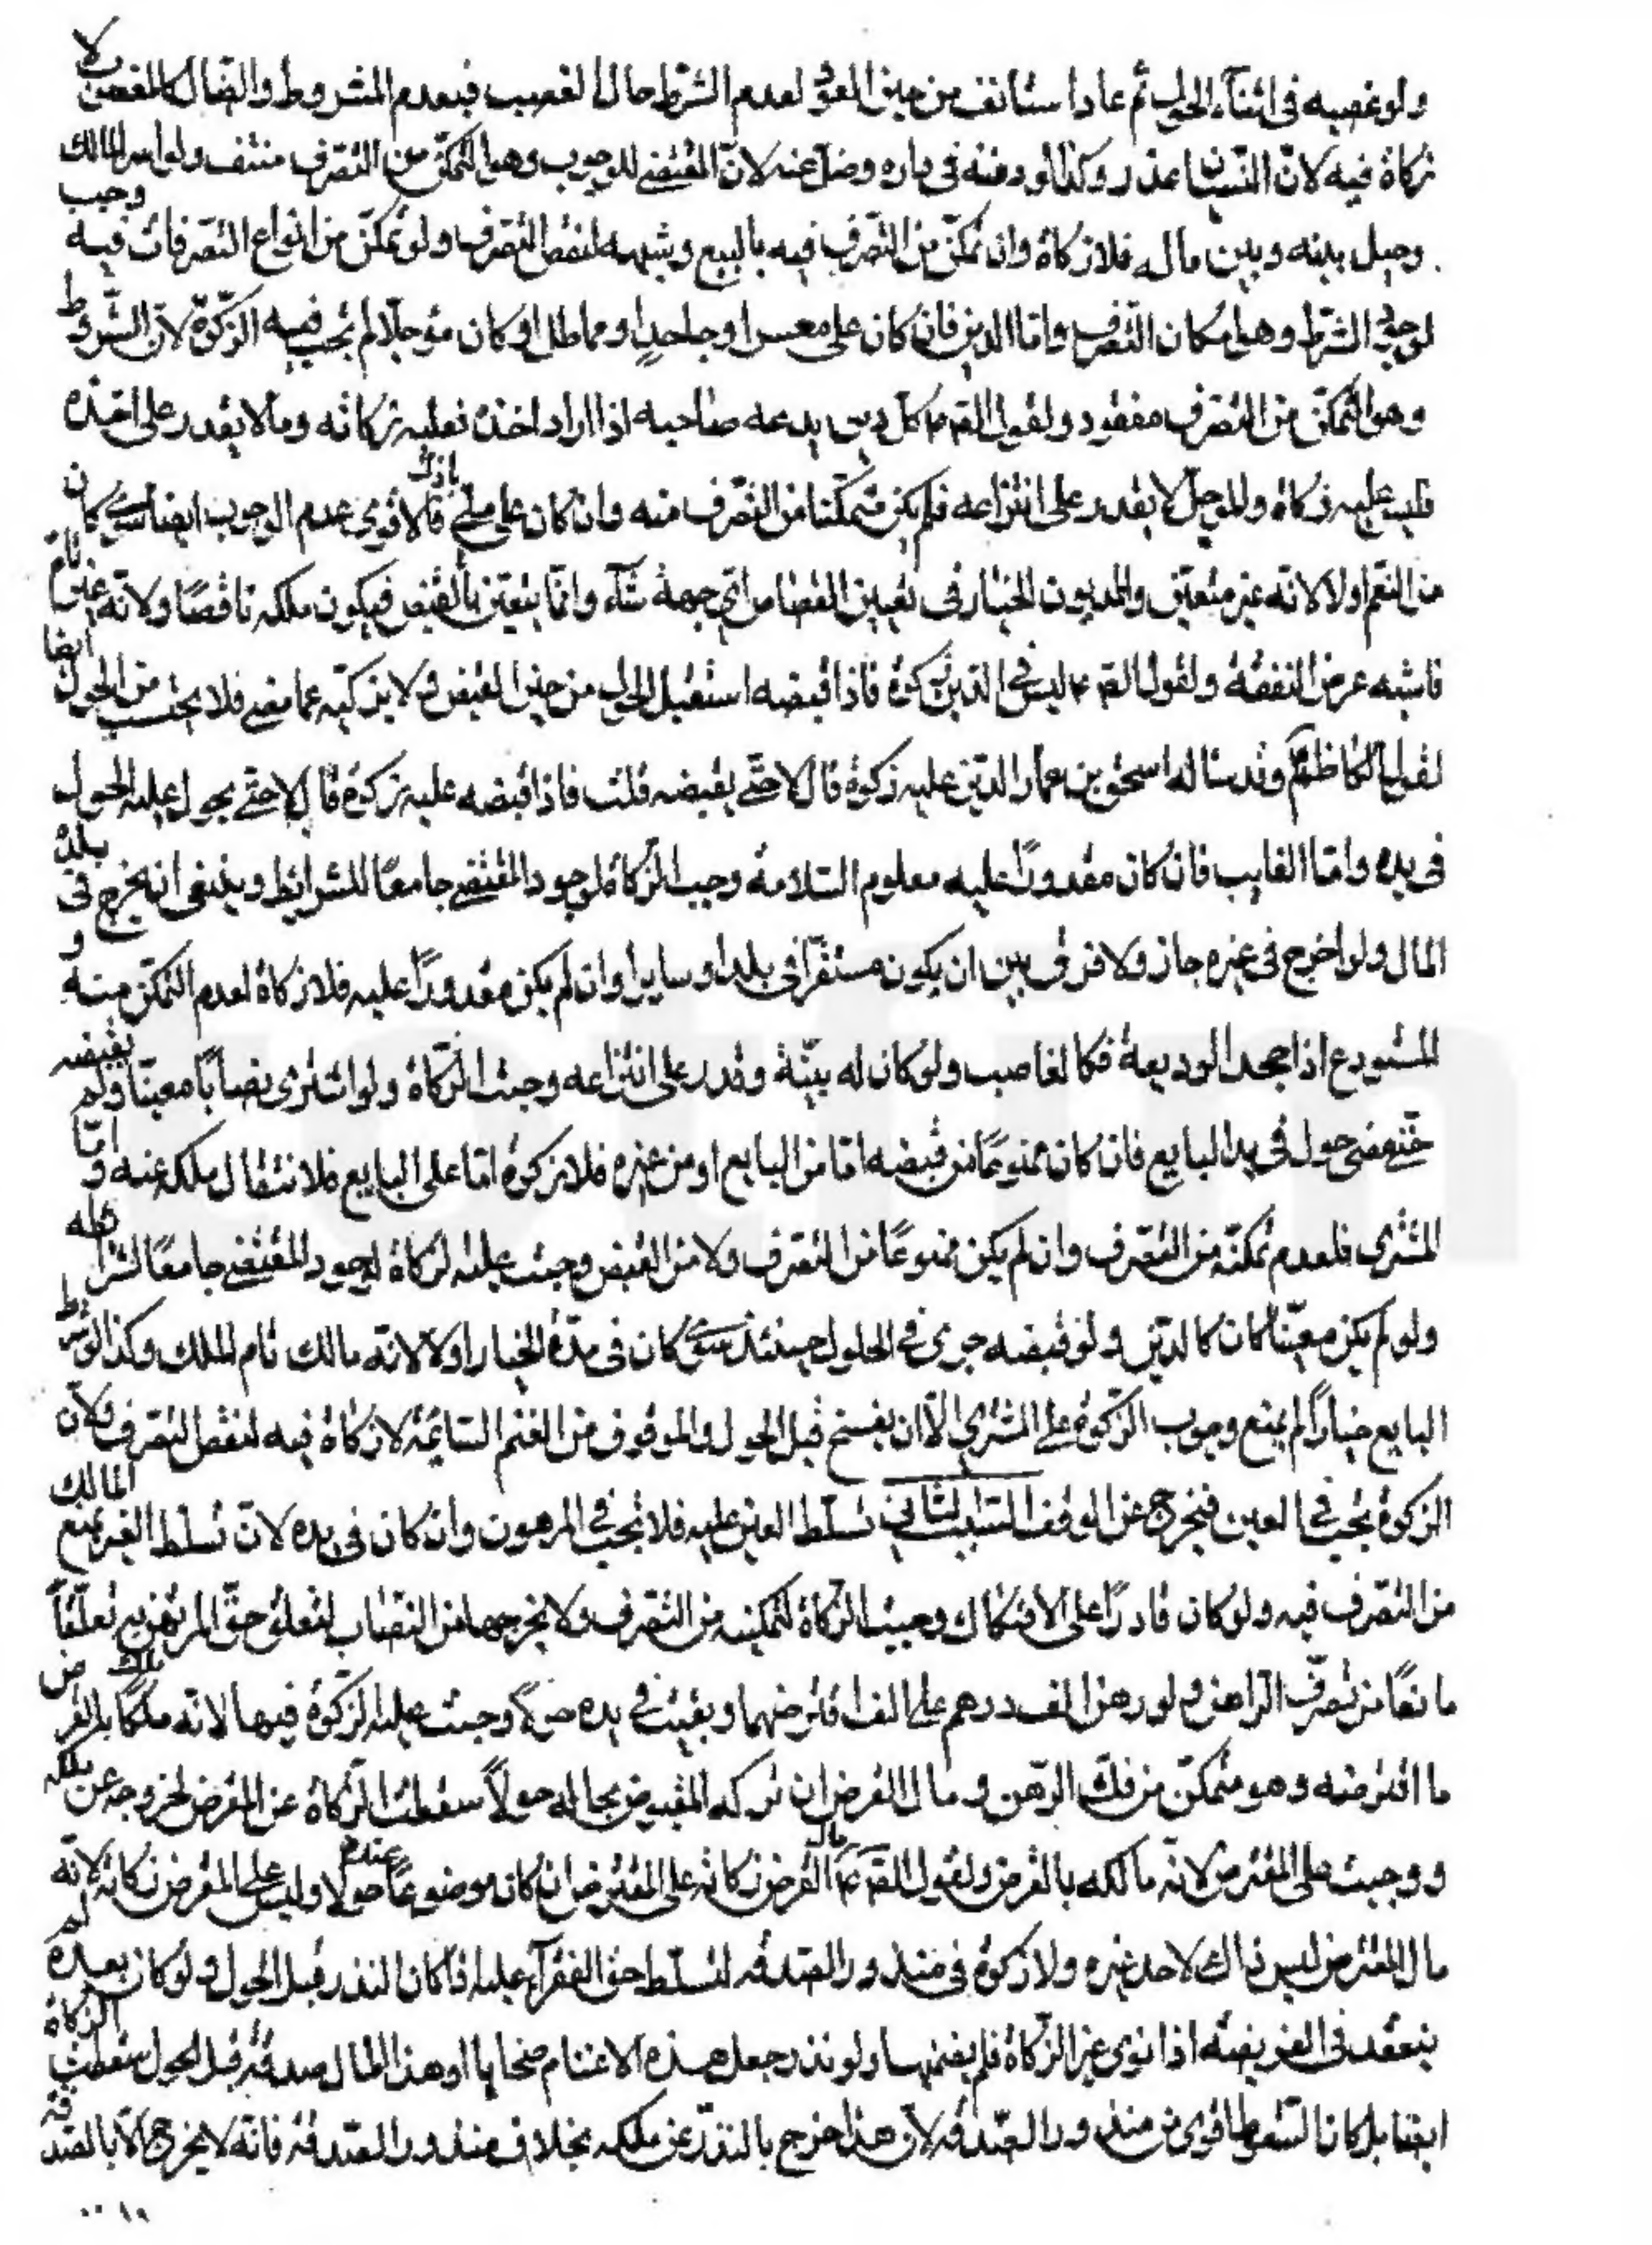 ولو غصبه في اثناء الحول ثم عاد استانف من حين العود لعدم الشرط حال الغصب فيعدم المشروط والضال كالمغصوب لا
زكاة فيه لان النسيان عذر وكذا لو دفنه في داره وضل عنه لان المقتضي للوجوب وهو التمكن من التصرف منتف ولو اسر المالك
وحيل بينه وبين ماله فلا زكاة وان تمكن من التصرف فيه بالبيع وشبهه لنقص التصرف ولو تمكن من انواع التصرفات فيه وجب
لوجود الشرط وهو امكان التصرف واما الدين فان كان على معسر او جاحد او مماطل او كان مؤجلا لم تجب فيه الزكوة لان الشروط
وهو التمكن من التصرف مفقود ولقول الصم كل دين يدعه صاحبه اذا اراد اخذه فعليه زكاته وما لا يقدر على اخذه
فليس عليه زكاة والمؤجل لا يقدر على انتزاعه فلم يكن متمكنا من التصرف منه وان كان على ملي باذل فالاقوى عدم الوجوب ايضا سوى كان
من النعم اولا لانه غير متعين والمديون الخيار في تعيين القضا من اي جهة شآء وانما يتعين بالقبض فيكون ملكه ناقصا ولانه غير تام
فاشبه عرض النفقة ولقول الصم ليس في الدين زكوة فاذا قبضه استقبل الحول من حين القبض ولا يزكيه عما مضى فلا يحتسب من الحول ايضا
لقول الكاظم وقد ساله اسحق بن عمار الدين عليه زكوة قال لا حتى يقبضه قلت فاذا قبضه عليه زكوة قال لا حتى يحول عليه الحول
في يده واما الغايب فان كان مقدورا عليه معلوم السلامة وجب الزكاة لوجود المقتضي جامعا للشرايط وينبغي ان يخرج في بلد
المال ولو اخرج في غيره جاز ولا فرق بين ان يكون مستقرا في بلد او سايرا وان لم يكن مقدورا عليه فلا زكاة لعدم التمكن منه و
المستودع اذا جحد الوديعة فكالغاصب ولو كان له بينة وقدر على انتزاعه وجبت الزكاة ولو اشترى نصابا معينا ولم يقبضه
حتى مضى حول في يد البايع فان كان ممنوعا من قبضه اما من البايع او من غيره فلا زكوة اما على البايع فلانتقال ملكه عنه و اما
المشتري فلعدم تمكنه من التصرف وان لم يكن ممنوعا من التصرف ولا من القبض وجبت عليه الزكاة لوجود المقتضي جامعا لشرائطه
ولو لم يكن معينا كان كالدين ولو قبضه جرى في الحلول حينئذ سوى كان في مدة الخيار اولا لانه مالك تام الملك وكذا لو شرط
البايع خيارا لم يمنع وجوب الزكوة على المشتري الا ان يفسخ قبل الحول والموقوف من الغنم السائمة لا زكاة فيه لنقص التصرف ولان
الزكوة تجب في العين فيخرج عن الوقف السبب الثاني تسلط الغير عليه فلا تجب في المرهون وان كان في يده لان تسلط الغير يمنع المالك
من التصرف فيه ولو كان قادرا على الافتكاك وجبت الزكاة لتمكينه من التصرف ولا يخرجها من النصاب لتعلق حق المرتهن به تعلقا
مانعا من تصرف الراهن ولو رهن الف درهم على الف اقترضهما وبقيت في يده حولا وجبت عليه الزكوة فيها لانه ملكا بالقرض
ما اقترضه وهو متمكن من فك الرهن و مال القرض ان تركه المقبض بحاله حولا سقطت الزكاة عن المقرض لخروجه عن ملكه
ووجبت على المقترض لانه مالكه بالقرض ولقول الصم مال القرض زكاته على المقترض ان كان موضوعا عنده حولا وليس على المقرض زكاته لانه
مال المقترض ليس ذاك لاحد غيره ولا زكوة في منذور الصدقة لتسلط حق الفقرآء عليه اذا كان النذر قبل الحول ولو كان بعده لم
ينعقد في الفريضة اذا نوى غير الزكاة فلم يضمنها ولو نذر جعل هذه الاغنام ضحايا او هذا المال صدقة قبل الحول سقطت الزكاة
ايضا بل كان السقوط اقوى من منذور الصدقة لان هذا خرج بالنذر عن ملكه بخلاف منذور الصدقة فانه لا يخرج الا بالصدقة